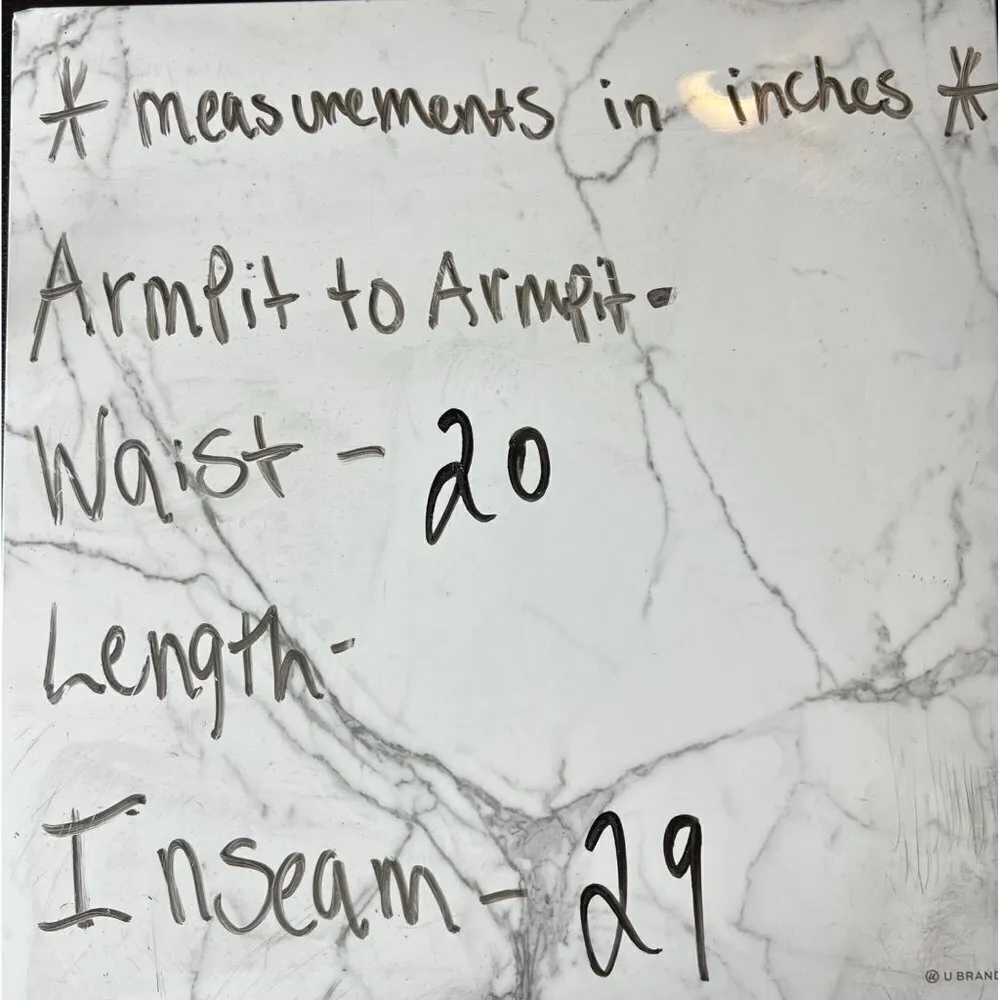 * measurements in inches *
ArmPit to Armpit-
Waist - 20
Length-
Inseam - 29
U BRAND